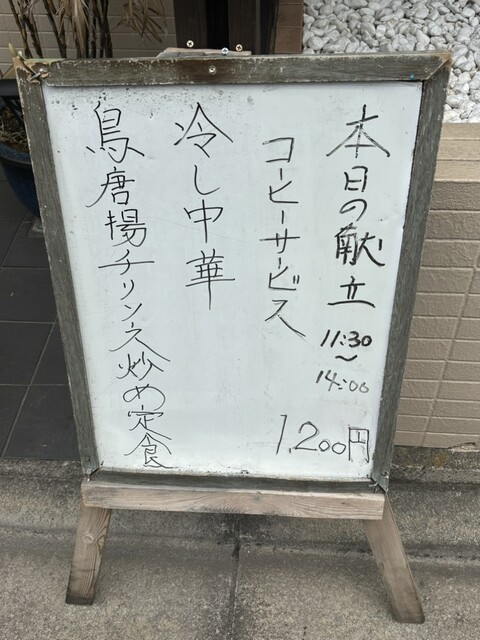 本日の献立 11:30～14:00
コーヒーサービス
1,200円
冷し中華
鳥唐揚チリソース炒め定食